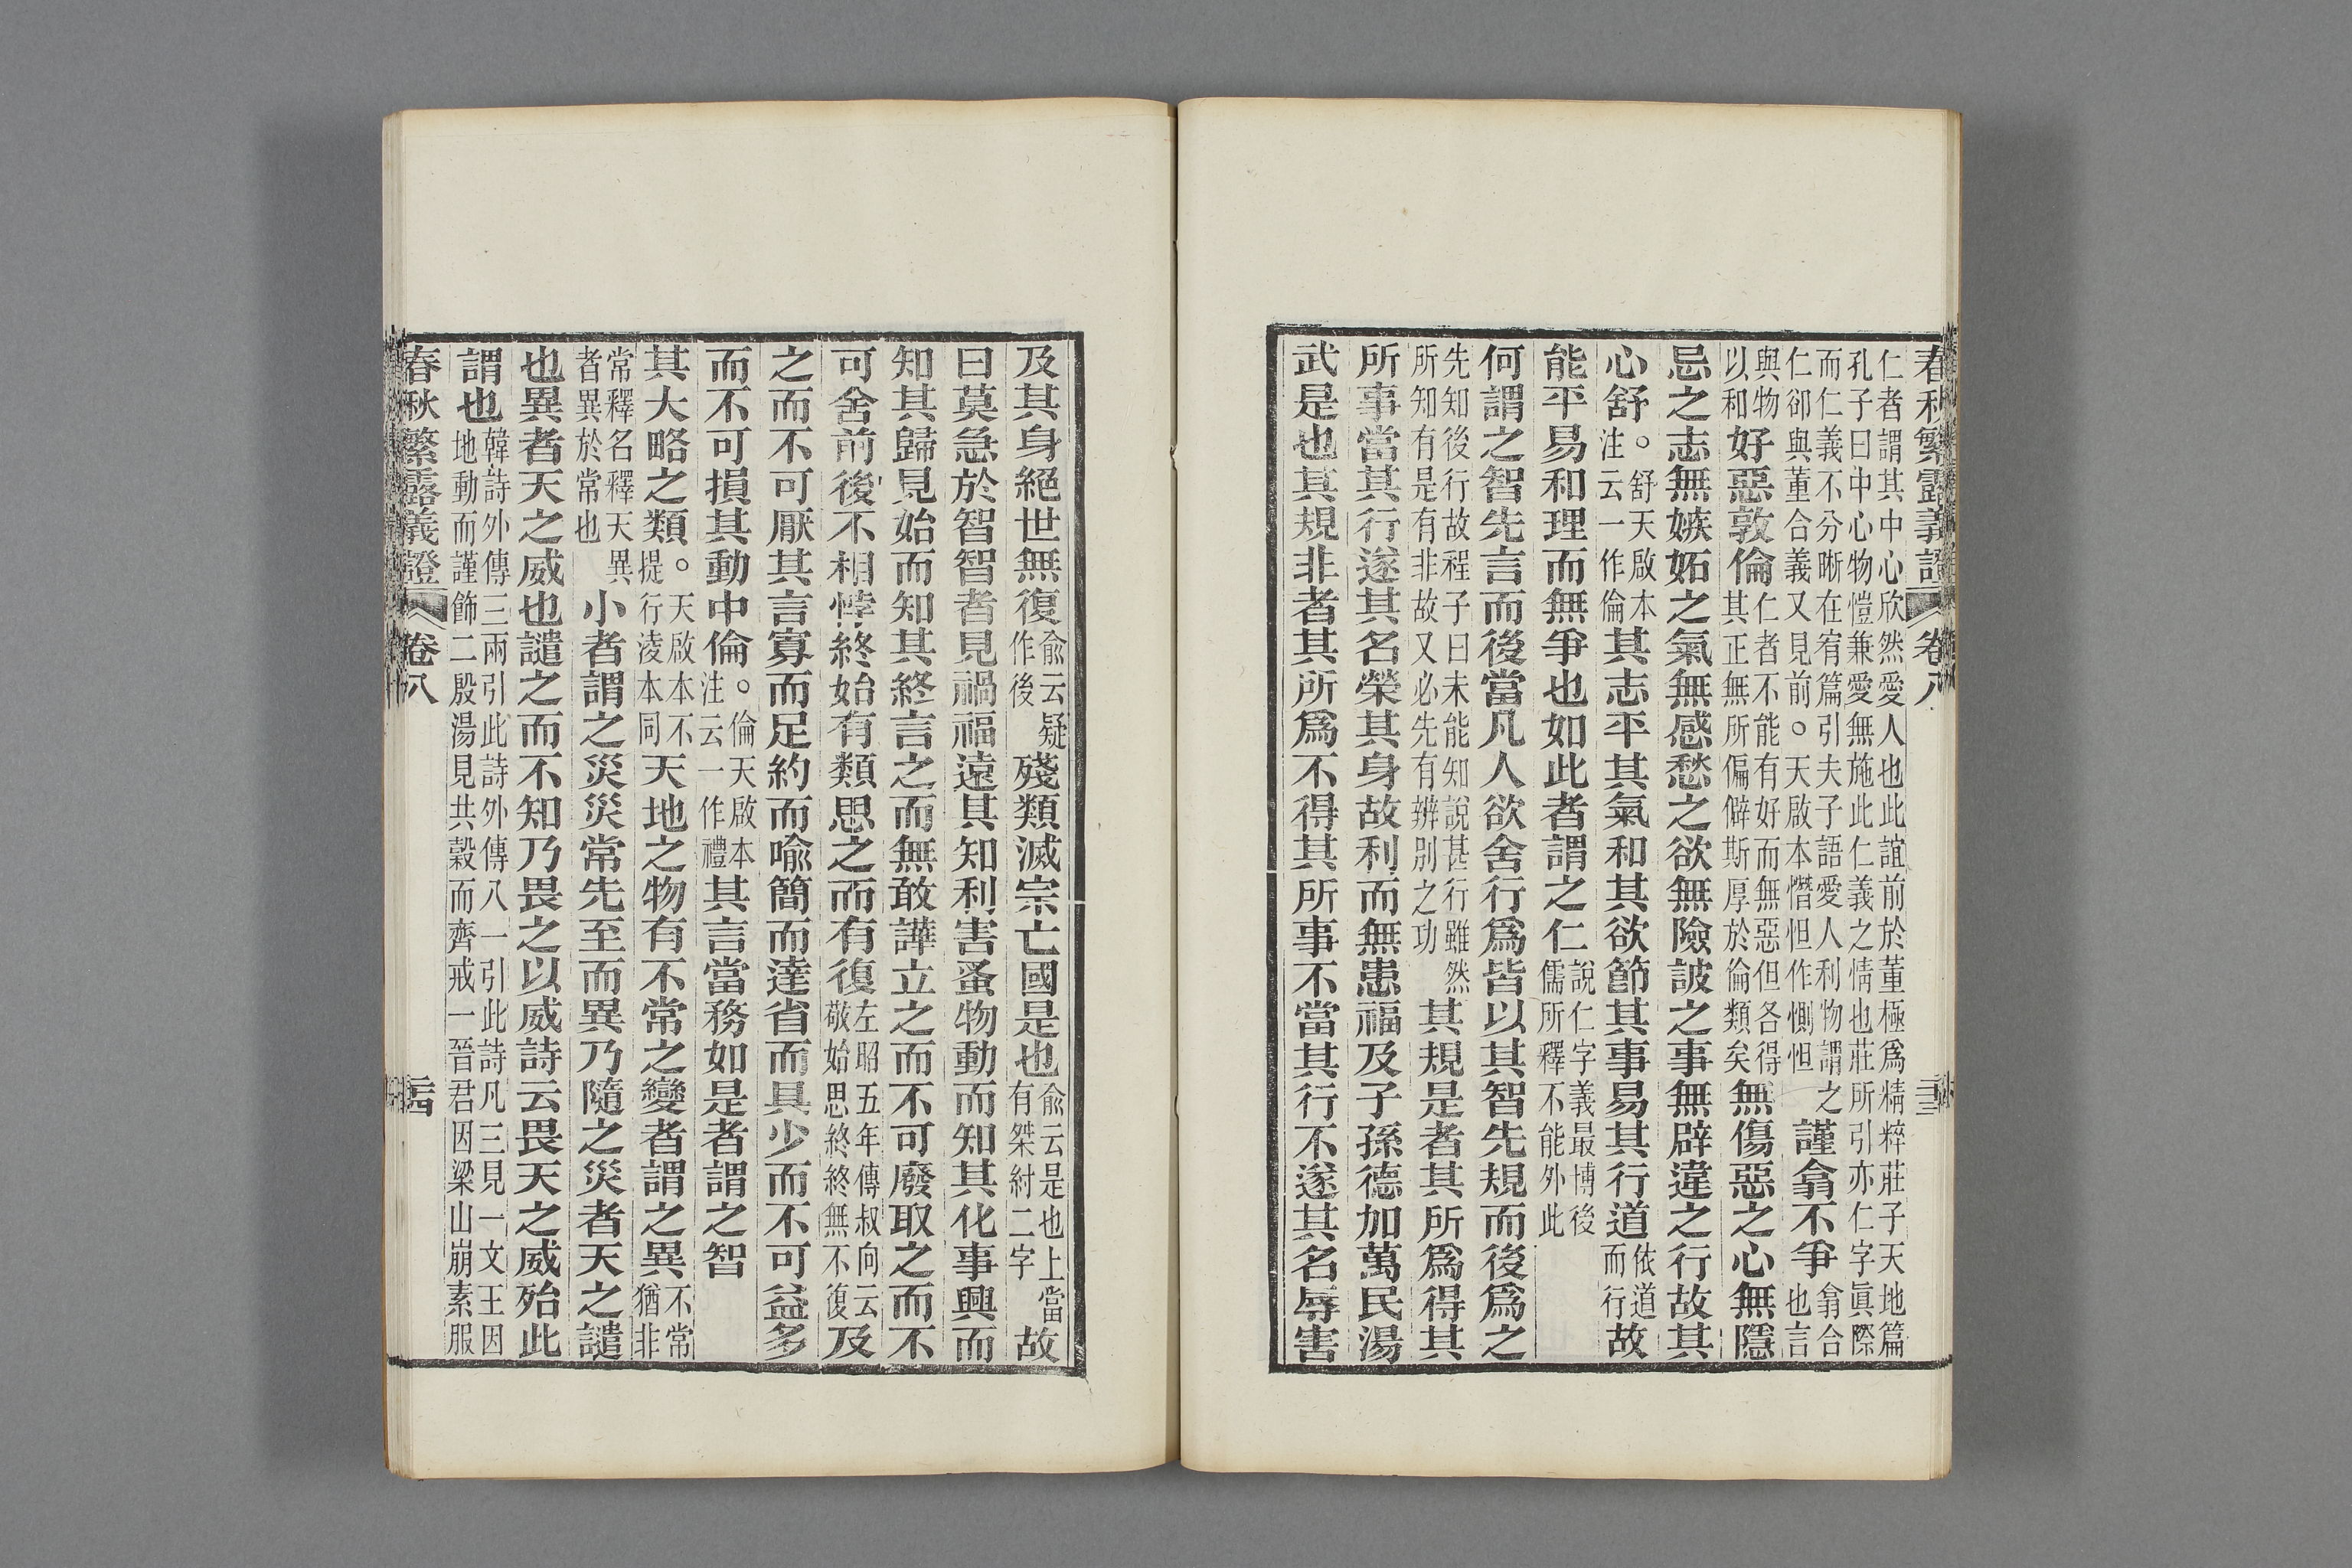 春秋繁露義證 卷八 二十三
仁者謂其中心欣然愛人也此誼前於董極爲精粹莊子天地篇
孔子曰中心物愷兼愛無施此仁義之情也莊所引亦仁字眞際
而仁義不分晰在宥篇引夫子語愛人利物謂之
仁卻與董合義又見前。天啟本憯怛作惻怛
謹翕不爭
翕合
也言
與物
以和
好惡敦倫
仁者不能有好而無惡但各得
其正無所偏僻斯厚於倫類矣
無傷惡之心無隱
忌之志無嫉妬之氣無感愁之欲無險詖之事無辟違之行故其
心舒。
舒天啟本
注云一作倫
其志平其氣和其欲節其事易其行道
依道
而行
故
能平易和理而無爭也如此者謂之仁
說仁字義最博後
儒所釋不能外此
何謂之智先言而後當凡人欲舍行爲皆以其智先規而後爲之
先知後行故程子曰未能知說甚行雖然
所知有是有非故又必先有辨別之功
其規是者其所爲得其
所事當其行遂其名榮其身故利而無患福及子孫德加萬民湯
武是也其規非者其所爲不得其所事不當其行不遂其名辱害
及其身絕世無復
俞云疑
作後
殘類滅宗亡國是也
俞云是也上當
有桀紂二字
故
曰莫急於智智者見禍福遠其知利害蚤物動而知其化事興而
知其歸見始而知其終言之而無敢譁立之而不可廢取之而不
可舍前後不相悖終始有類思之而有復
左昭五年傳叔向云
敬始思終終無不復
及
之而不可厭其言寡而足約而喻簡而達省而具少而不可益多
而不可損其動中倫。
倫天啟本
注云一作禮
其言當務如是者謂之智
其大略之類。
天啟本不
提行淩本同
天地之物有不常之變者謂之異
不常
猶非
常釋名釋天異
者異於常也
小者謂之災災常先至而異乃隨之災者天之譴
也異者天之威也譴之而不知乃畏之以威詩云畏天之威殆此
謂也
韓詩外傳三兩引此詩外傳八一引此詩凡三見一文王因
地動而謹飾二殷湯見共穀而齊戒一晉君因梁山崩素服
春秋繁露義證 卷八 二十四